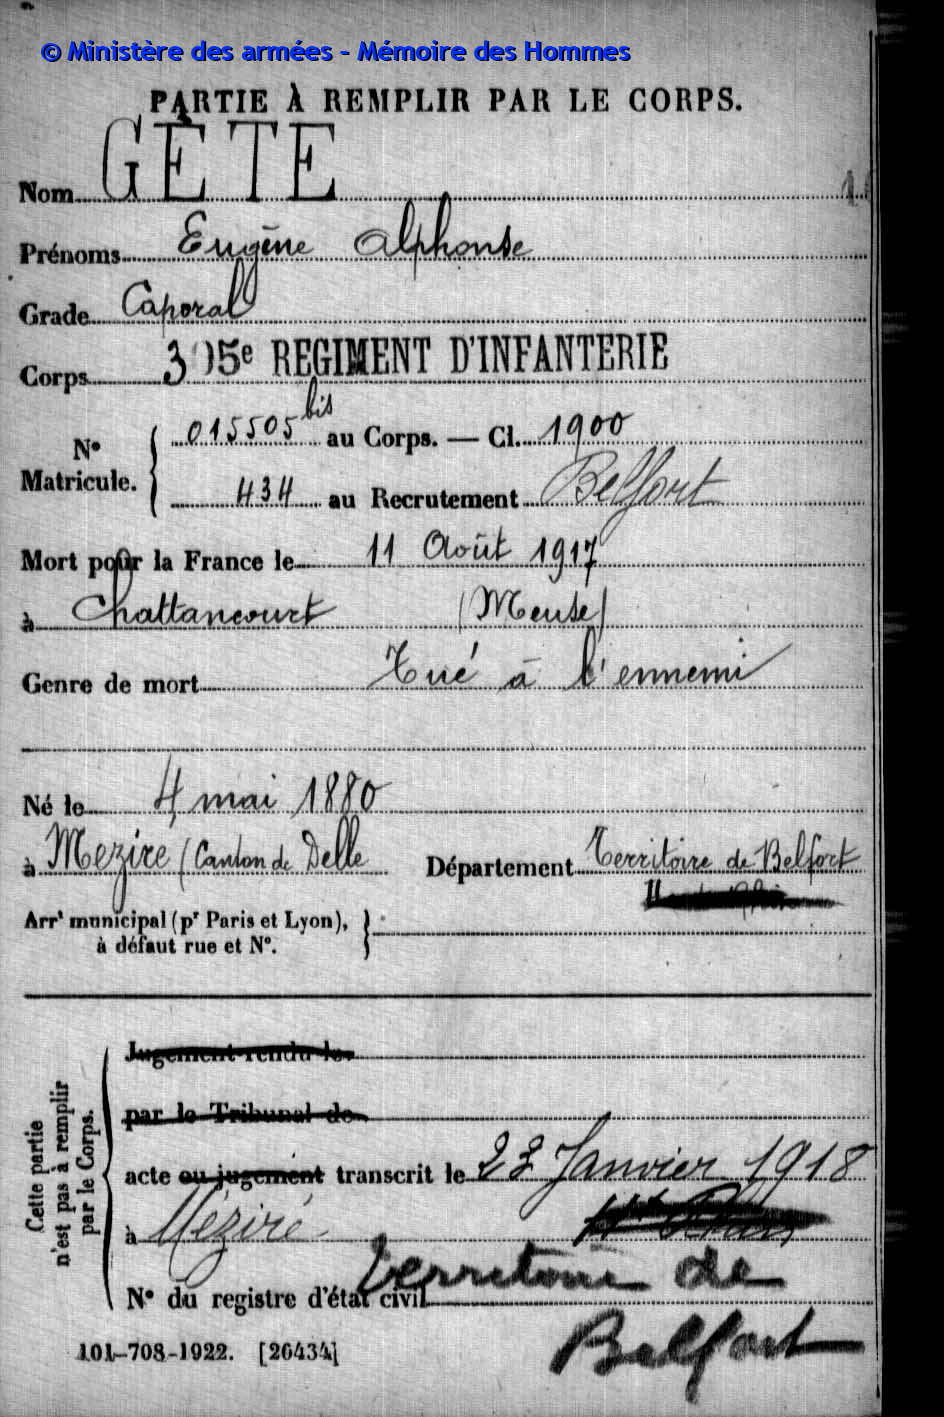 © Ministère des armées - Mémoire des Hommes
PARTIE À REMPLIR PAR LE CORPS.
Nom GÈTE
Prénoms Eugène Alphonse
Grade Caporal
Corps 305e REGIMENT D'INFANTERIE
N° Matricule. 015505 bis au Corps. — Cl. 1900
434 au Recrutement Belfort
Mort pour la France le 11 Août 1917
à Chattancourt (Meuse)
Genre de mort Tué à l'ennemi
Né le 4 mai 1880
à Meziré (Canton de Delle Département Territoire de Belfort
Arrt municipal (pr Paris et Lyon),
à défaut rue et N°.
Cette partie
n'est pas à remplir
par le Corps.
Jugement rendu le
par le Tribunal de
acte ou jugement transcrit le 23 Janvier 1918
à Méziré
Territoire de
N° du registre d'état civil
Belfort
101-708-1922. [26434]